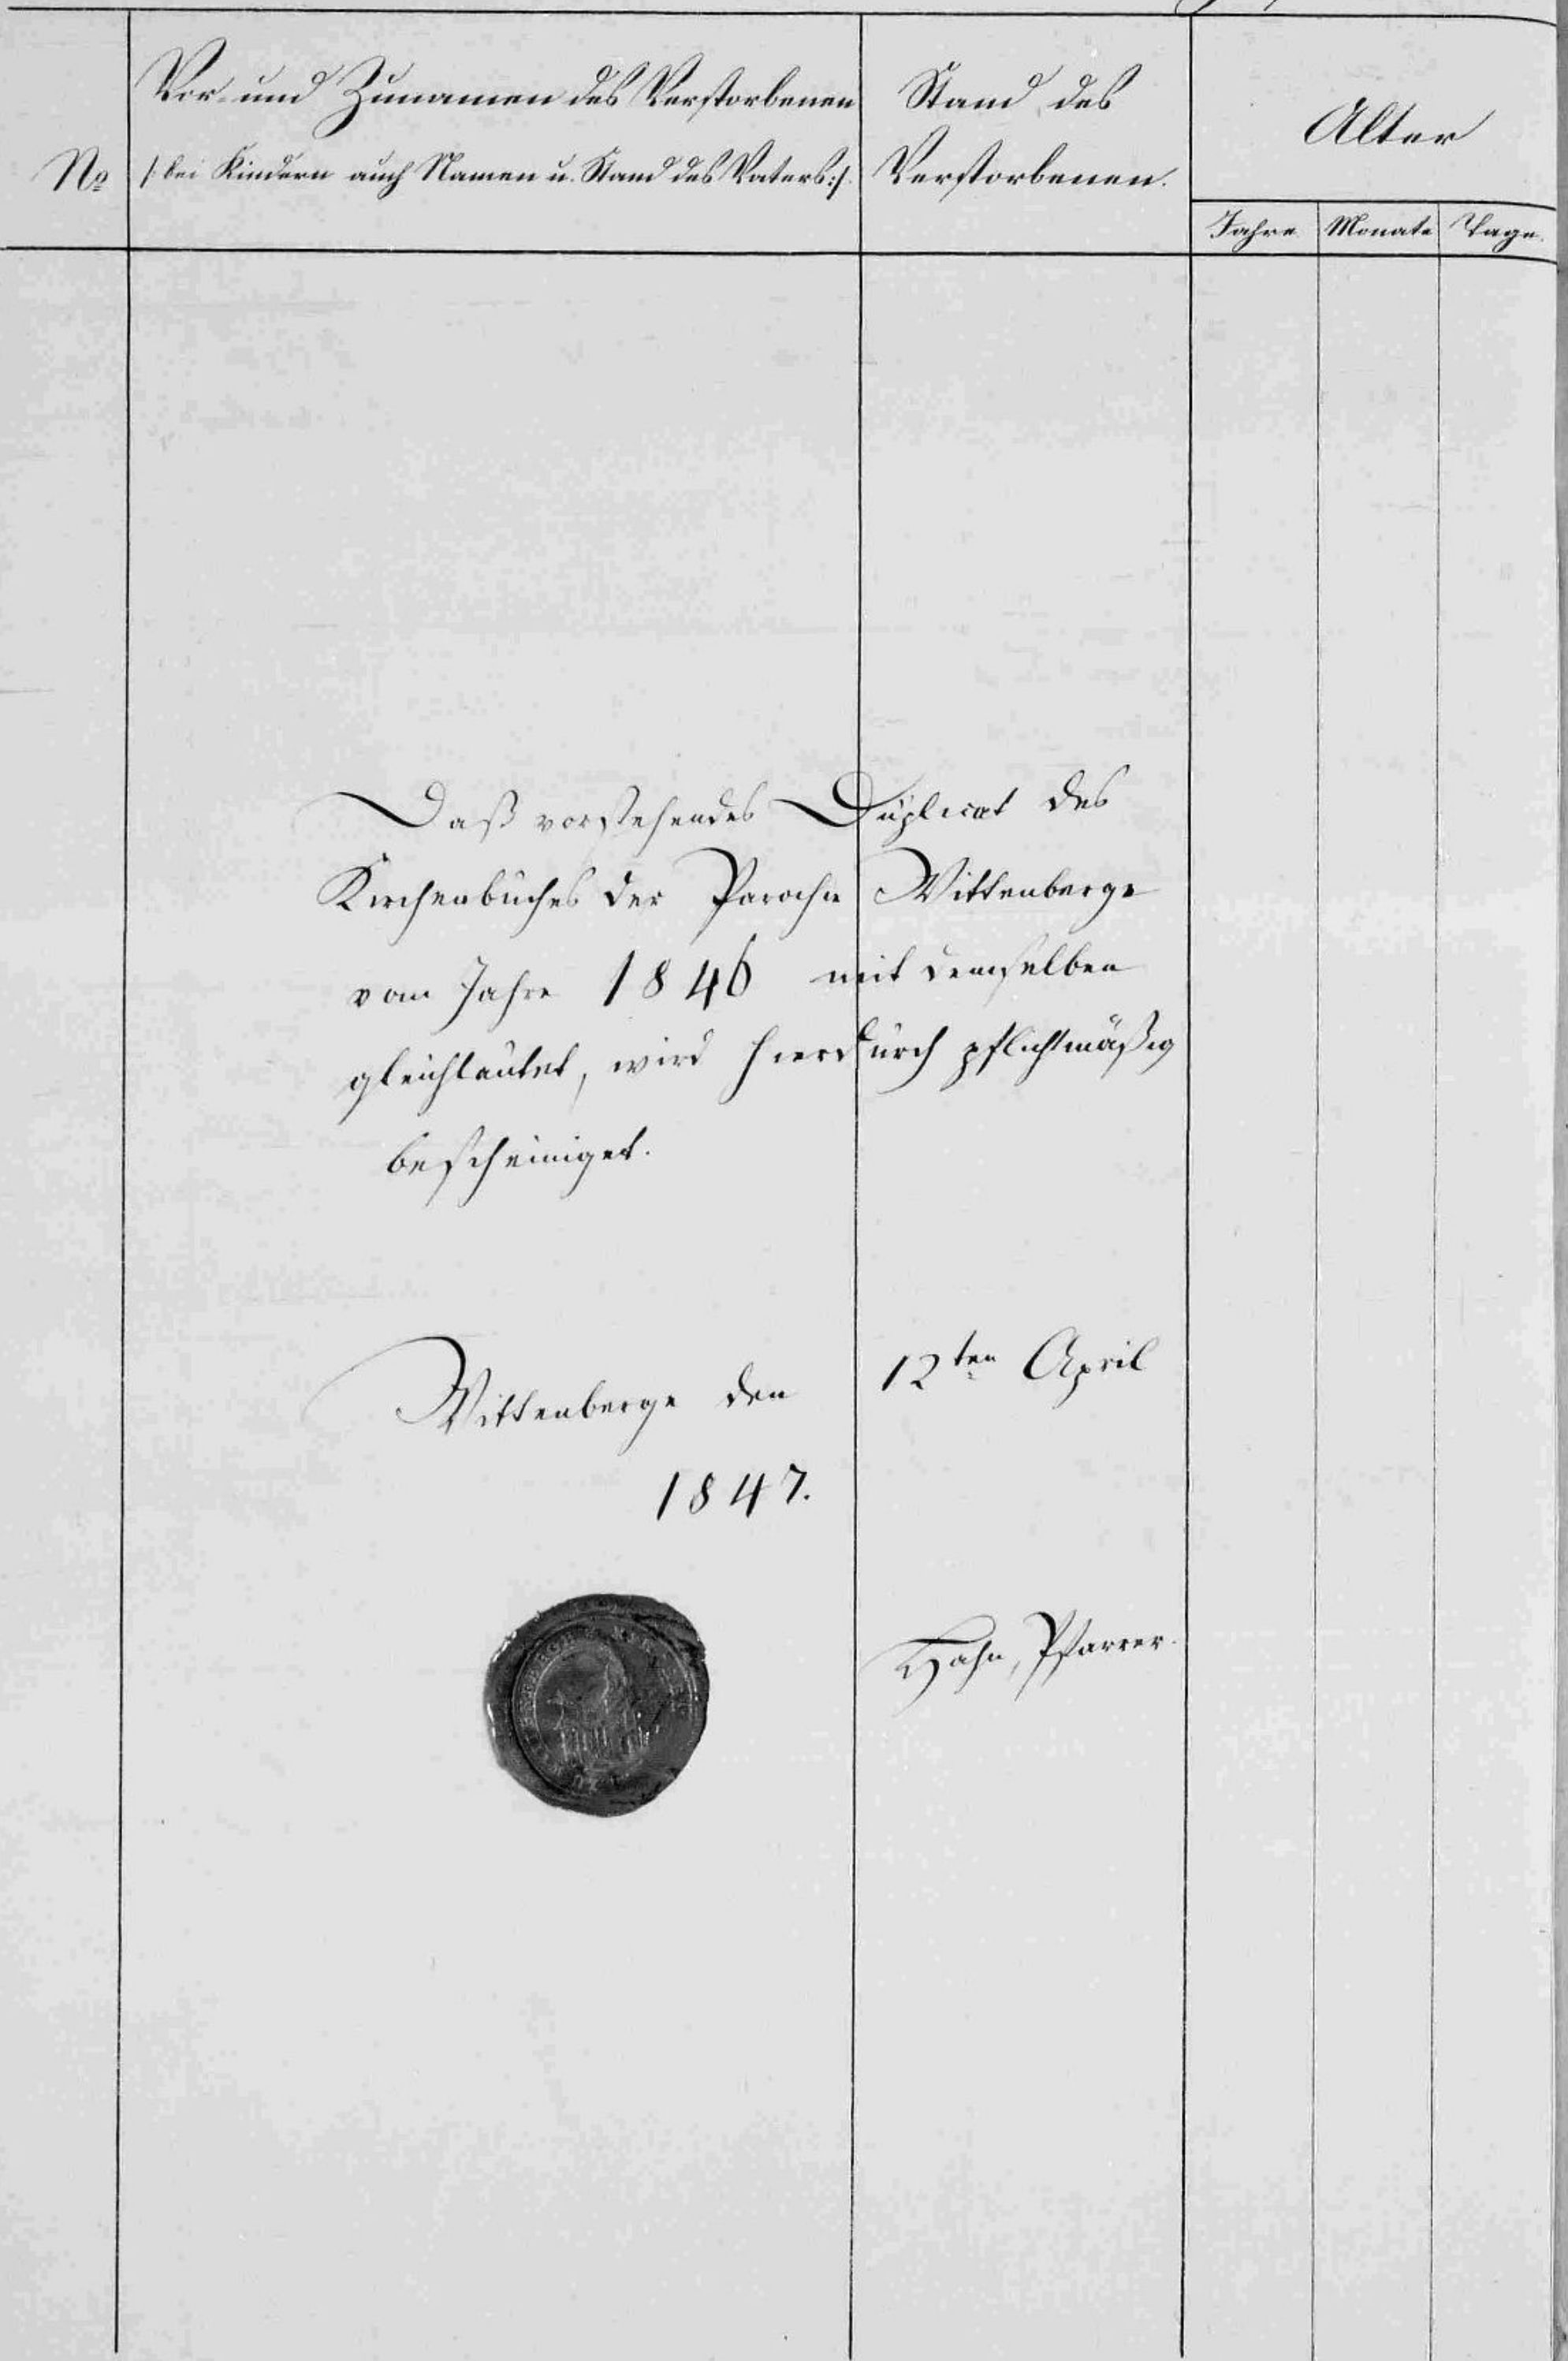 Vor- und Zunamen des Verstorbenen
Stand des
Alter
No
/: bei Kindern auch Namen u. Stand des Vaters :/.
Verstorbenen.
Jahre Monate Tage.
Daß vorstehendes Duplicat des
Kirchenbuches der Parochie Wittenberge
vom Jahre 1846 mit demselben
gleichlautet, wird hierdurch pflichtmäßig
bescheiniget.
Wittenberge den 12ten April
1847.
Hahn, Pfarrer.